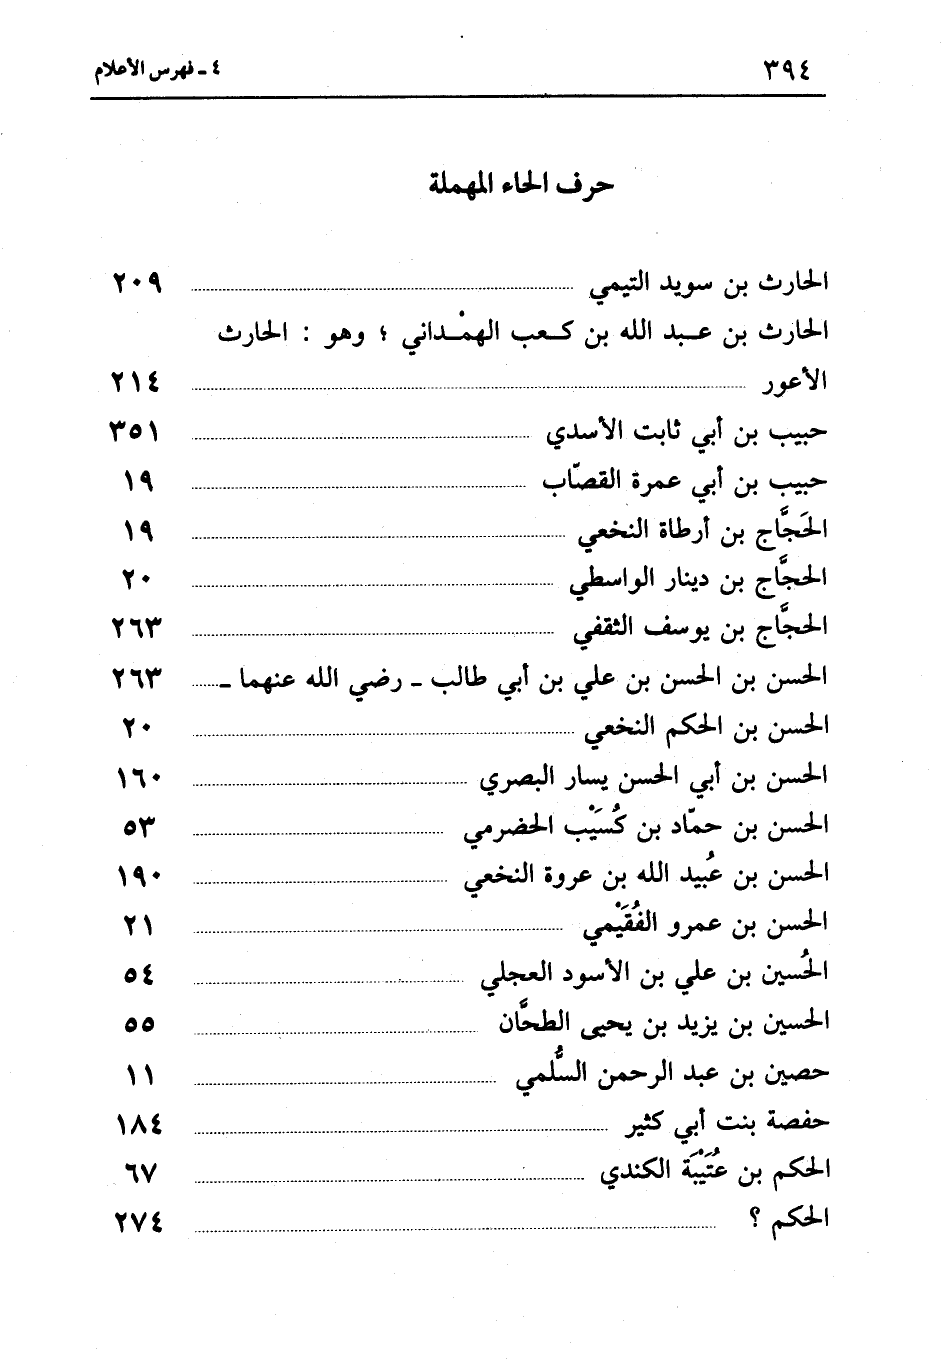 ٣٩٤ ٤ ـ فهرس الأعلام
حرف الحاء المهملة
الحارث بن سويد التيمي ٢٠٩
الحارث بن عبد الله بن كعب الهمْداني ؛ وهو : الحارث
الأعور ٢١٤
حبيب بن أبي ثابت الأسدي ٣٥١
حبيب بن أبي عمرة القصّاب ١٩
الحَجَّاج بن أرطاة النخعي ١٩
الحجَّاج بن دينار الواسطي ٢٠
الحجَّاج بن يوسف الثقفي ٢٦٣
الحسن بن الحسن بن علي بن أبي طالب ـ رضي الله عنهما ـ ٢٦٣
الحسن بن الحكم النخعي ٢٠
الحسن بن أبي الحسن يسار البصري ١٦٠
الحسن بن حمّاد بن كُسَيْب الحضرمي ٥٣
الحسن بن عُبيد الله بن عروة النخعي ١٩٠
الحسن بن عمرو الفُقَيْمي ٢١
الحُسين بن علي بن الأسود العجلي ٥٤
الحسين بن يزيد بن يحيى الطحَّان ٥٥
حصين بن عبد الرحمن السُّلمي ١١
حفصة بنت أبي كثير ١٨٤
الحكم بن عُتَيْبَة الكندي ٦٧
الحكم ؟ ٢٧٤